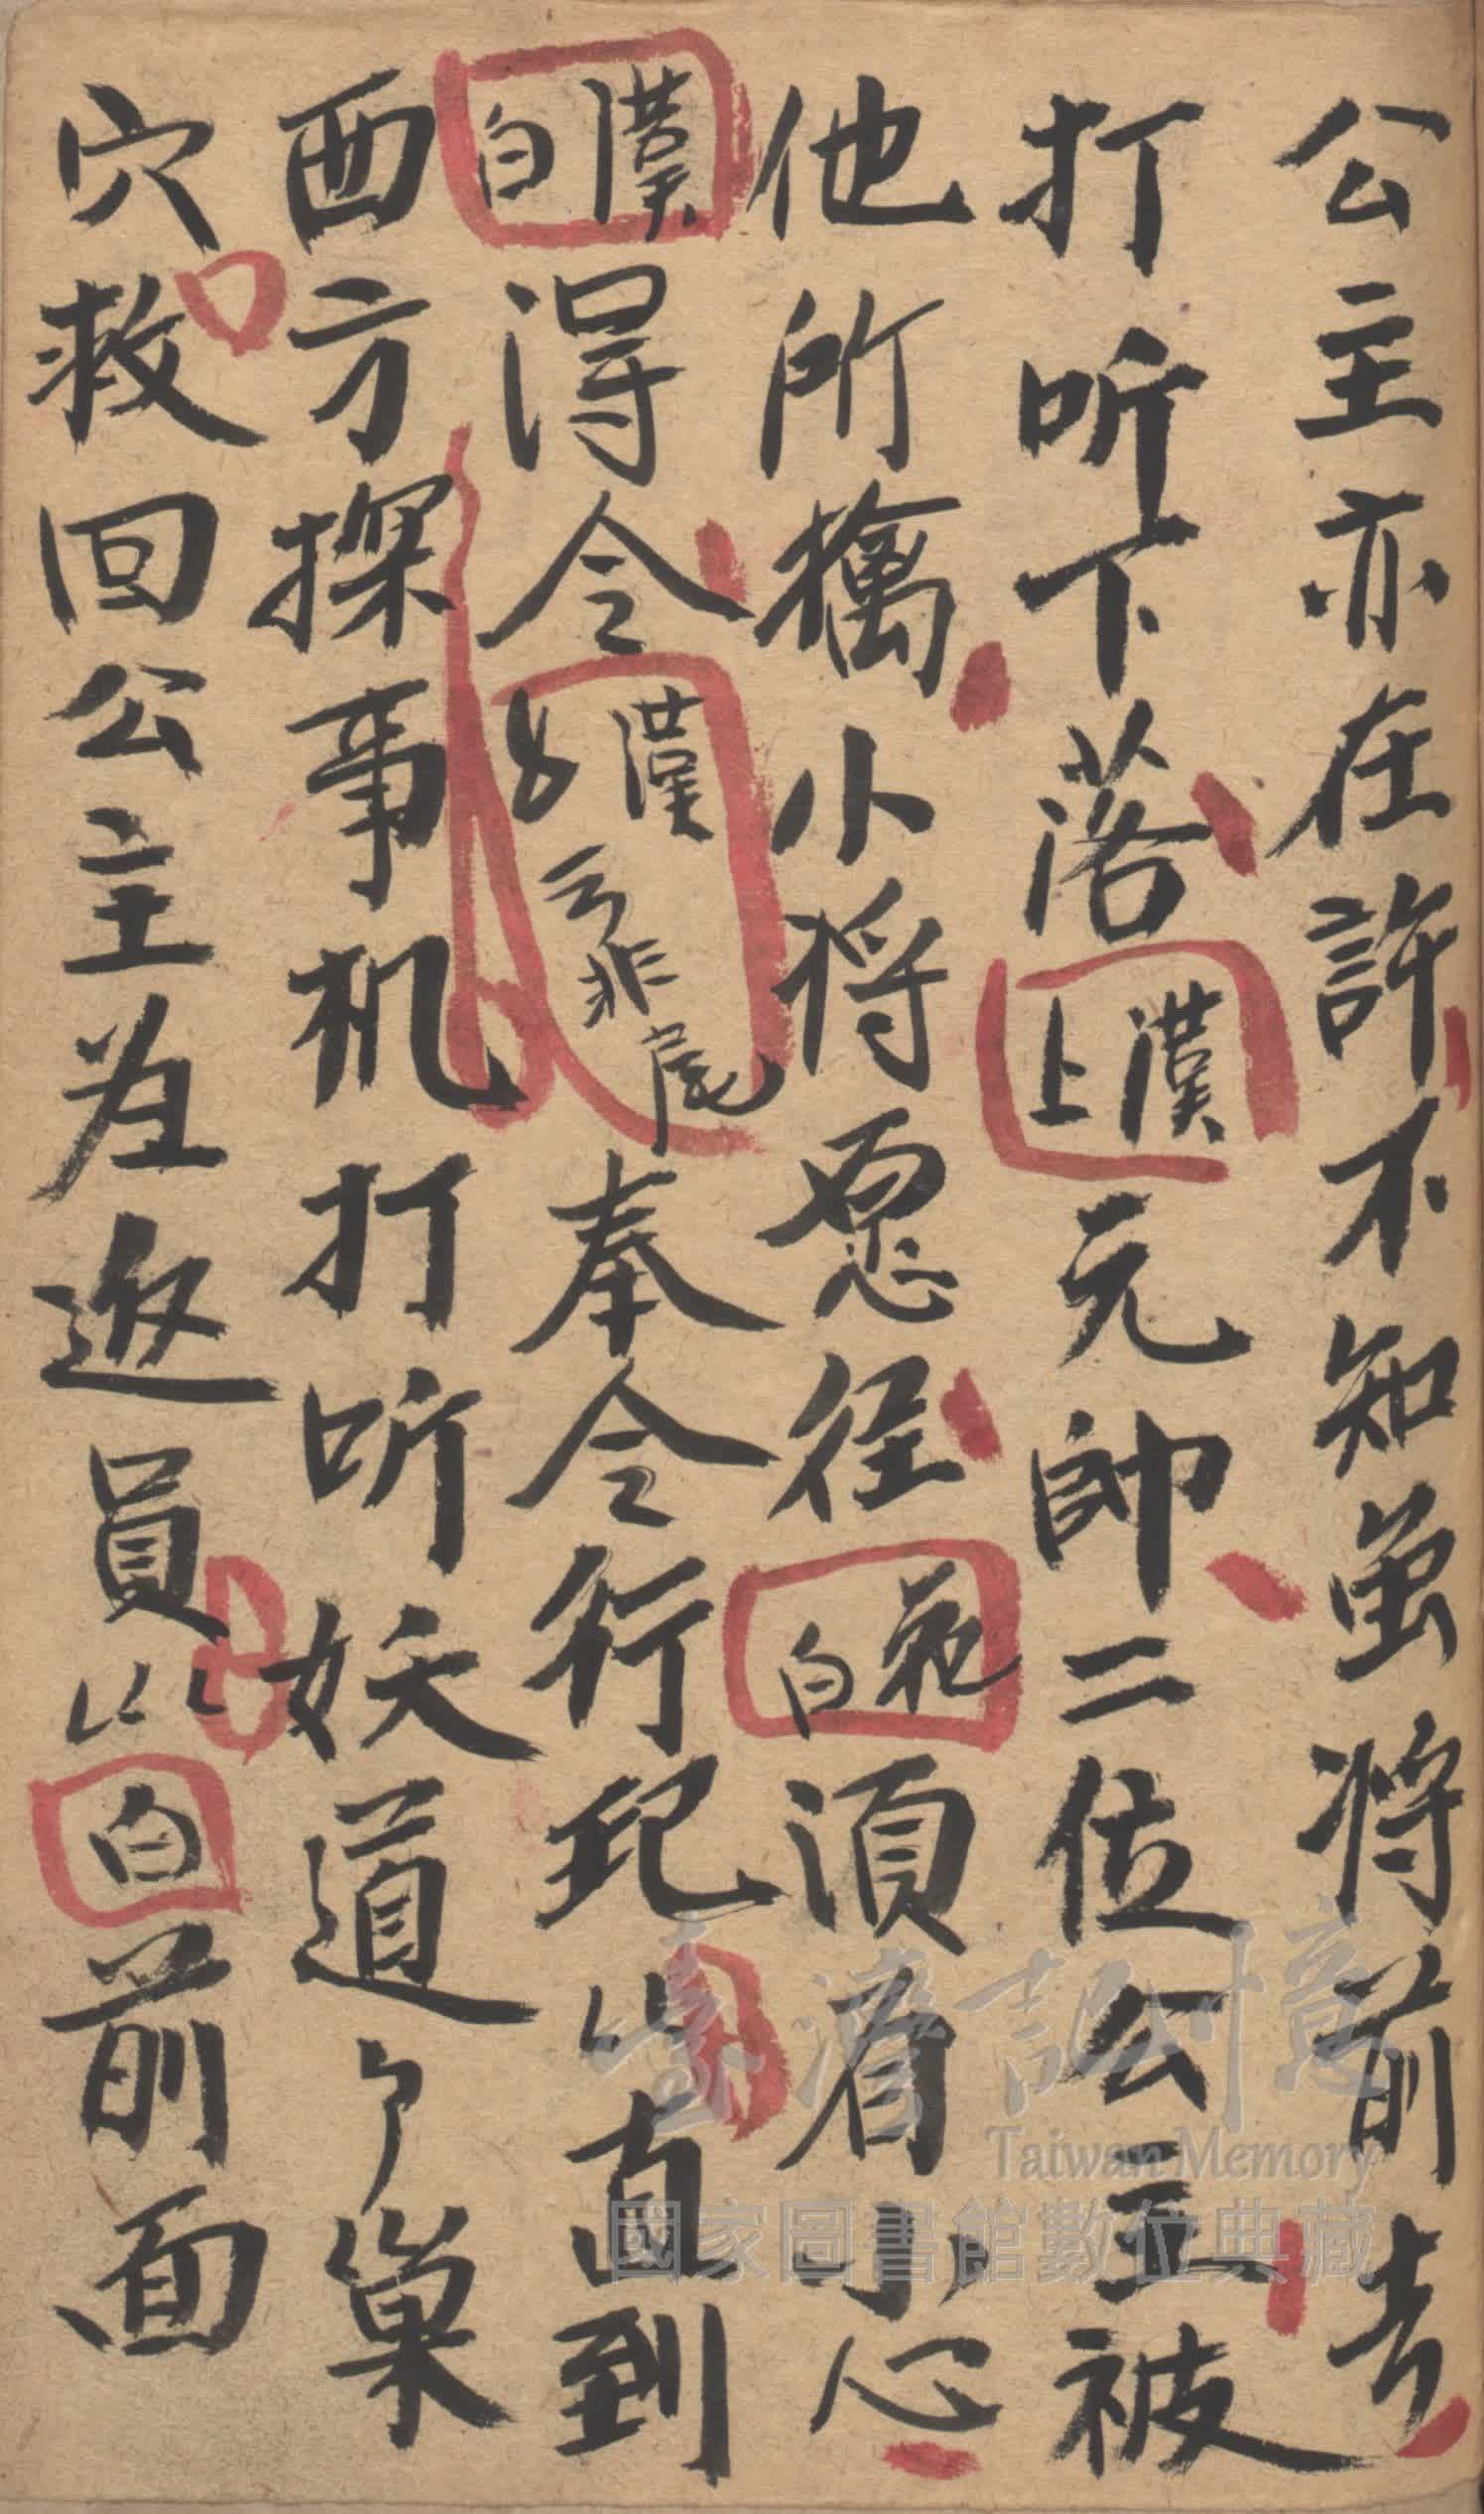 公主亦在許不知虽将前去
打听下落漢上元帥二位公主被
他所擒小将愿往範白須着小心
漢白得令漢云非尾奉令行兆直到
西方探事机打听妖道巢
穴救回公主为返員白前面
臺灣記憶
Taiwan Memory
國家圖書館數位典藏